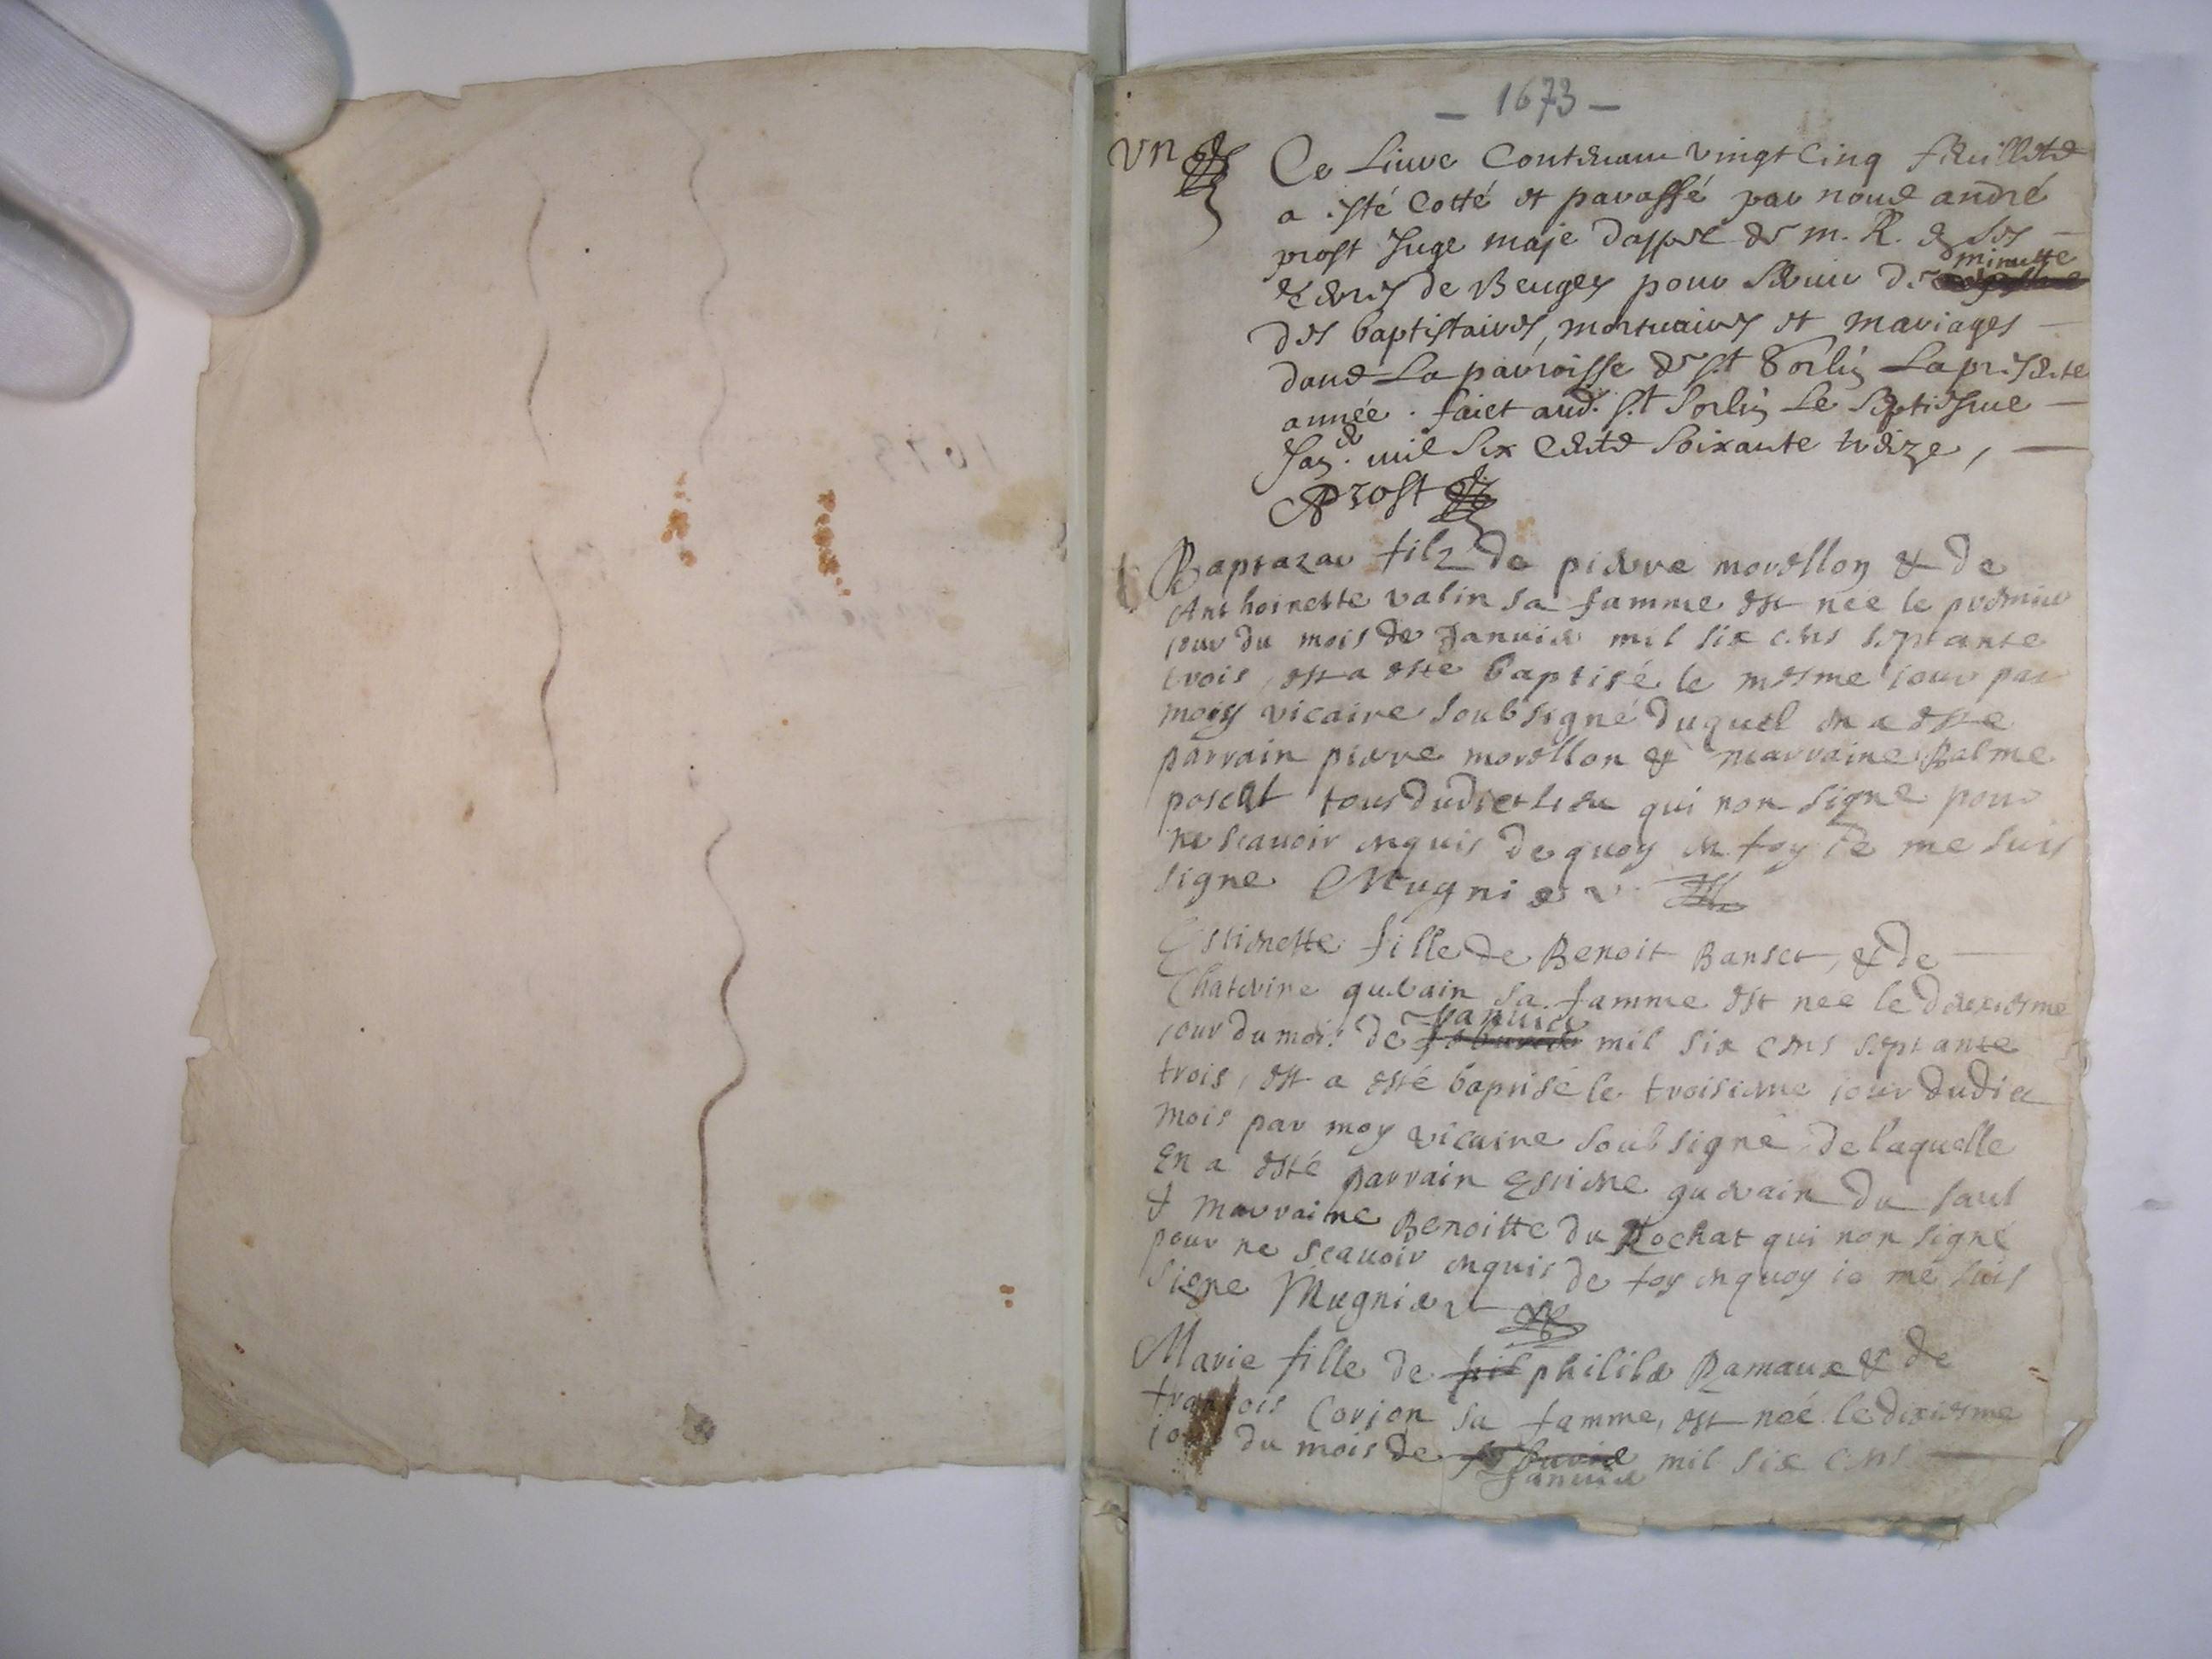 - 1673 -
Un Ce Livre Contenant vingt Cinq feuillets
a esté Cotté et paraffé par nous andré
prost Juge maje d'appel de m. R. & ses
terres de Beugey pour servir de minutte
des baptistaires, mortuaires et mariages
dans La parroisse de St Sorlin La presente
année. faict aud. St Sorlin Le septiesme
Jan. mil six Cents soixante treize,
Prost
Baptazar filz de pierre morellon & de
Anthoinette valin sa famme est née le premier
jour du mois de Januier mil six cens septante
trois, est a esté baptisé le mesme iour par
moy vicaire soubsigné duquel en a esté
parrain pierre morellon & marraine Balme
poscat tous dudict lieu qui non signe pour
ne scauoir enquis de quoy en foy ie me suis
signe Mugnier
Estienette fille de Benoit Banset, & de
Chaterine guerain sa famme est née le deuxiesme
jour du mois de Januier mil six cens septante
trois, est a esté baptisé le troisieme iour dudict
mois par moy vicaire soubsigné de laquelle
En a esté parrain Estiene guerain du saul
& marraine Benoitte du Rochat qui non signé
pour ne scauoir enquis de foy enquoy ie me suis
signe Mugnier
Marie fille de phililer Ramaux & de
fransois Corjon sa famme, est née le dixiesme
iour du mois de Januier mil six cens